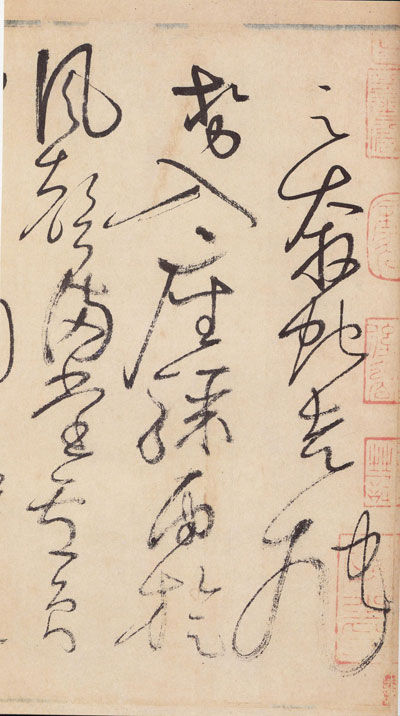 云奔蛇走虺
勢入座驟雨旋
風聲滿堂盧員